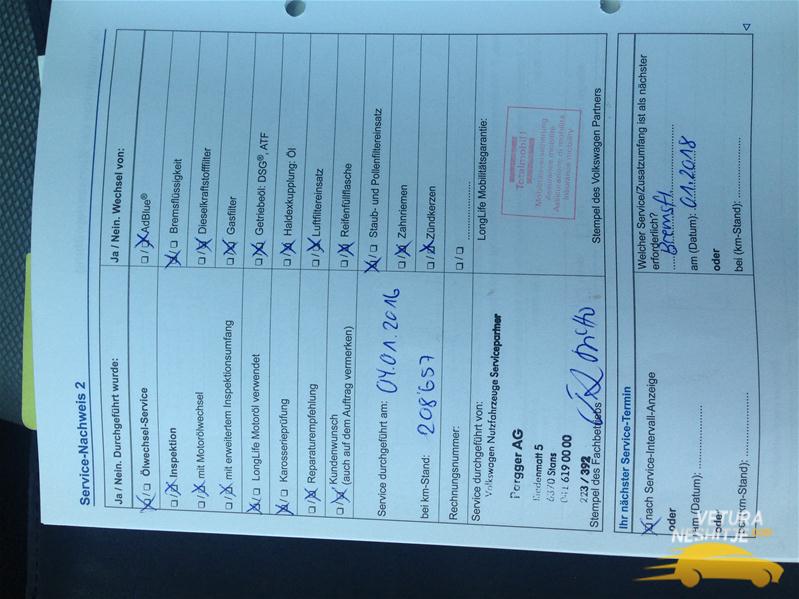 Service-Nachweis 2
Ja / Nein. Durchgeführt wurde:
Ölwechsel-Service
Inspektion
mit Motorölwechsel
mit erweitertem Inspektionsumfang
LongLife Motoröl verwendet
Karosserieprüfung
Reparaturempfehlung
Kundenwunsch
(auch auf dem Auftrag vermerken)
Service durchgeführt am: 04.01.2016
bei km-Stand: 208'657
Rechnungsnummer:
Service durchgeführt von:
Volkswagen Nutzfahrzeuge Servicepartner
Porgger AG
Riedenmatt 5
6370 Stans
041 619 00 00
223 / 392
Stempel des Fachbetriebs
Ja / Nein. Wechsel von:
AdBlue®
Bremsflüssigkeit
Dieselkraftstofffilter
Gasfilter
Getriebeöl: DSG®, ATF
Haldexkupplung: Öl
Luftfiltereinsatz
Reifenfüllflasche
Staub- und Pollenfiltereinsatz
Zahnriemen
Zündkerzen
LongLife Mobilitätsgarantie:
Totalmobil!
Mobilitätsversicherung
Assurance mobilité
Assicurazione di mobilità
Insurance mobility
Stempel des Volkswagen Partners
Ihr nächster Service-Termin
nach Service-Intervall-Anzeige
oder
am (Datum):
oder
bei (km-Stand):
Welcher Service/Zusatzumfang ist als nächster
erforderlich?
Bremsfl.
am (Datum): 01.2018
oder
bei (km-Stand):
VETURA
NESHITJE
.com